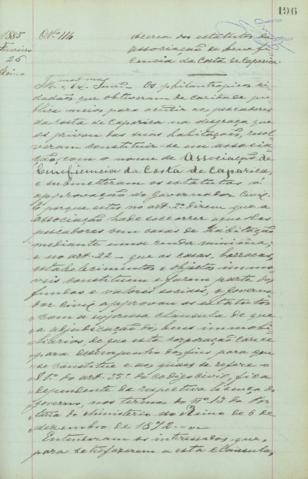 196
1885
Fevereiro
26
Reino
Nº 116
Ácerca dos estatutos da
associação de Benefi
cencia da Costa de Caparica.
Illmo e Exmo Snr. Os philantropicos ci
dadãos que obtiveram da caridade pu
blica meios para acudir aos pescadores
da Costa de Caparica na desgraça que
os privou das suas habitações, resol
veram constituir-se em uma associa
ção, com o nome de Associação de
Beneficencia da Costa de Caparica,
e submetteram os estatutos á
approvação do Governador Civil.
E porque estes no artº 2º dizem que a
associação hade soccorrer aquelles
pescadores com casas de habitação
mediante uma renda minima;
e no artº 32 - que as casas, barracas,
estabelecimentos e objectos immo
veis constituem e fazem parte dos
fundos e valores sociaes, o Governa
dor Civil approvou os estatutos
com a expressa clausula de que
a adjudicação dos bens immobi
liarios, de que esta corporação carece
para desempenho dos fins para que
se constitue e aos quaes se refere o
§ 5º do artº do Codigo Civil, fica
dependente da respectiva licença do
governo, nos termos do nº 13 da Por
taria do Ministerio do Reino de 6 de
dezembro de 1872.
Entenderam os interessados, que,
para satisfazerem a esta clausula,